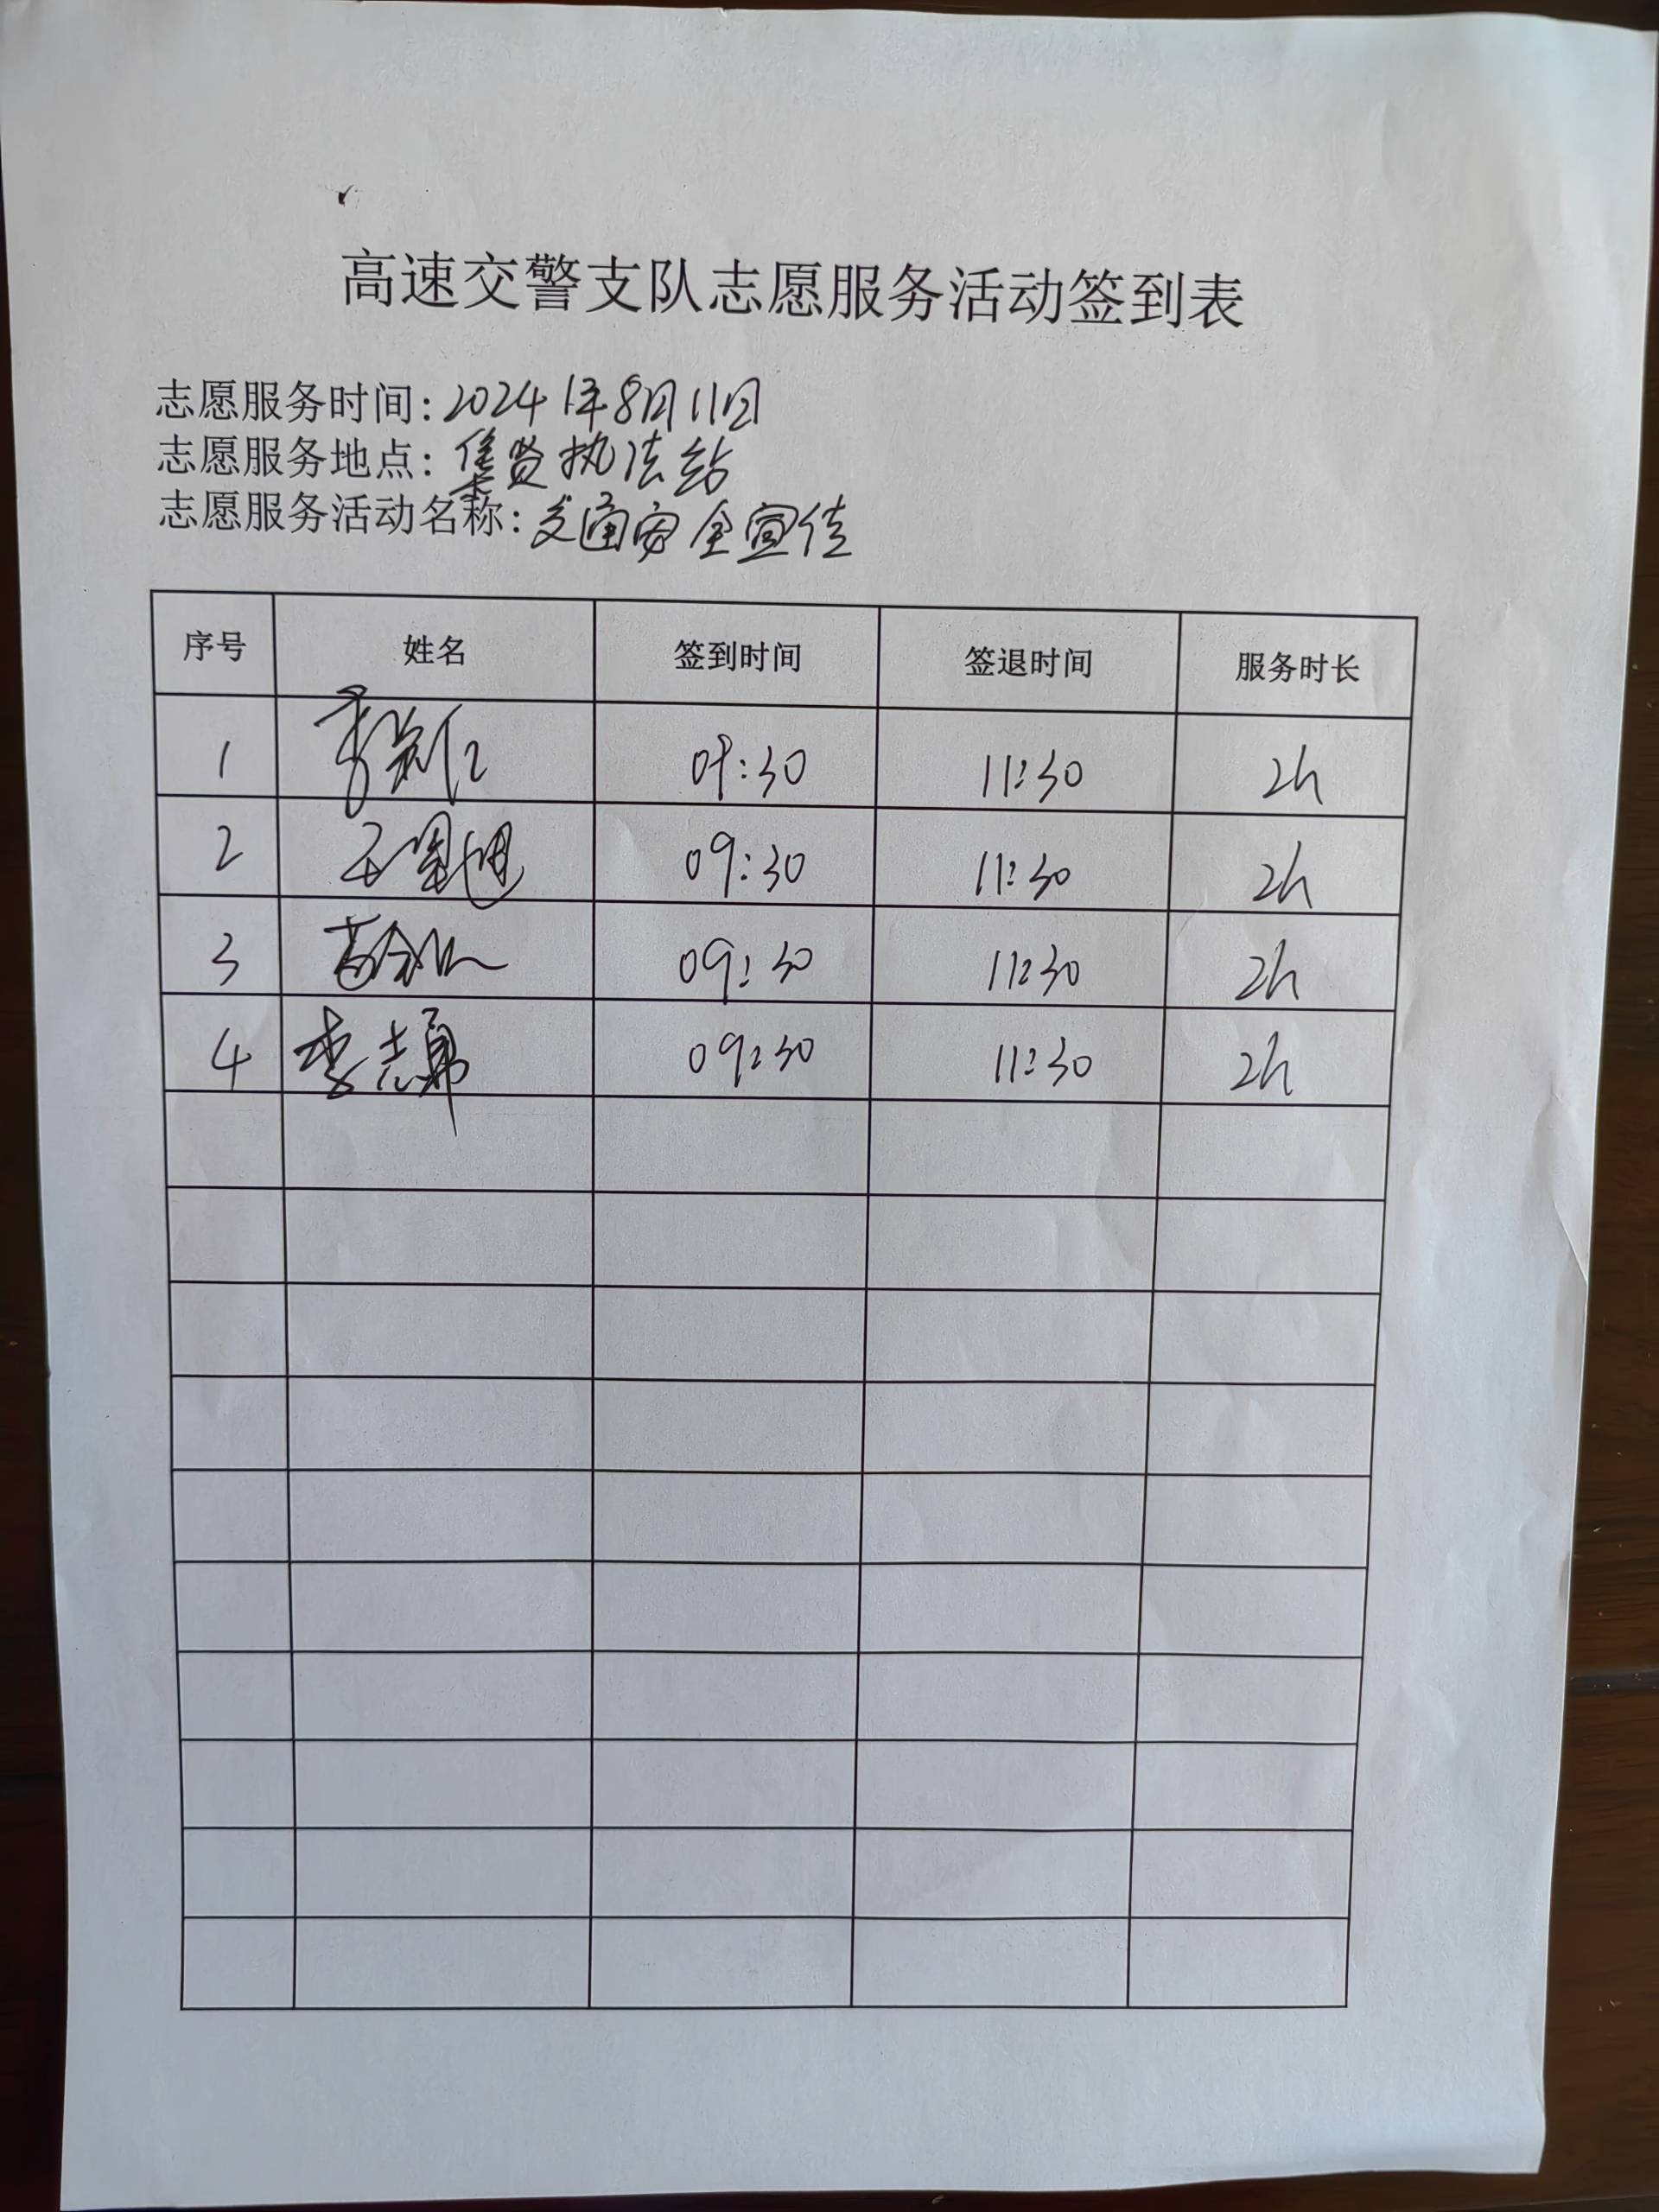 高速交警支队志愿服务活动签到表
志愿服务时间：2024年8月11日
志愿服务地点：集贤执法站
志愿服务活动名称：交通安全宣传
序号 姓名 签到时间 签退时间 服务时长
1 09:30 11:30 2h
2 09:30 11:30 2h
3 09:30 11:30 2h
4 李志勇 09:30 11:30 2h